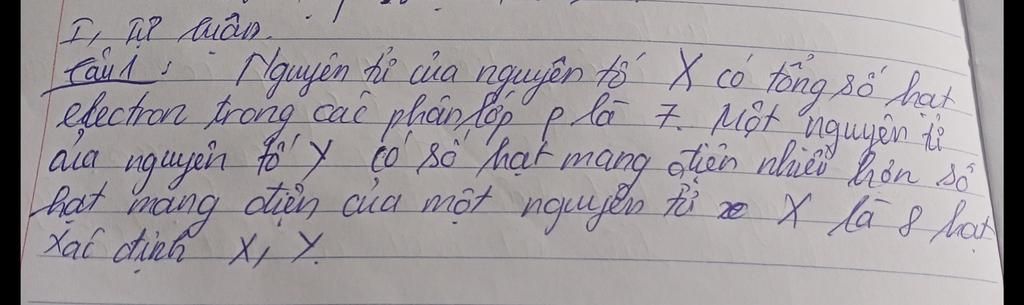 I, Tự luận.
Câu 1: Nguyên tử của nguyên tố X có tổng số hạt
electron trong các phân lớp p là 7. Một nguyên tử
của nguyên tố Y có số hạt mang điện nhiều hơn số
hạt mang điện của một nguyên tử X là 8 hạt
Xác định X, Y.